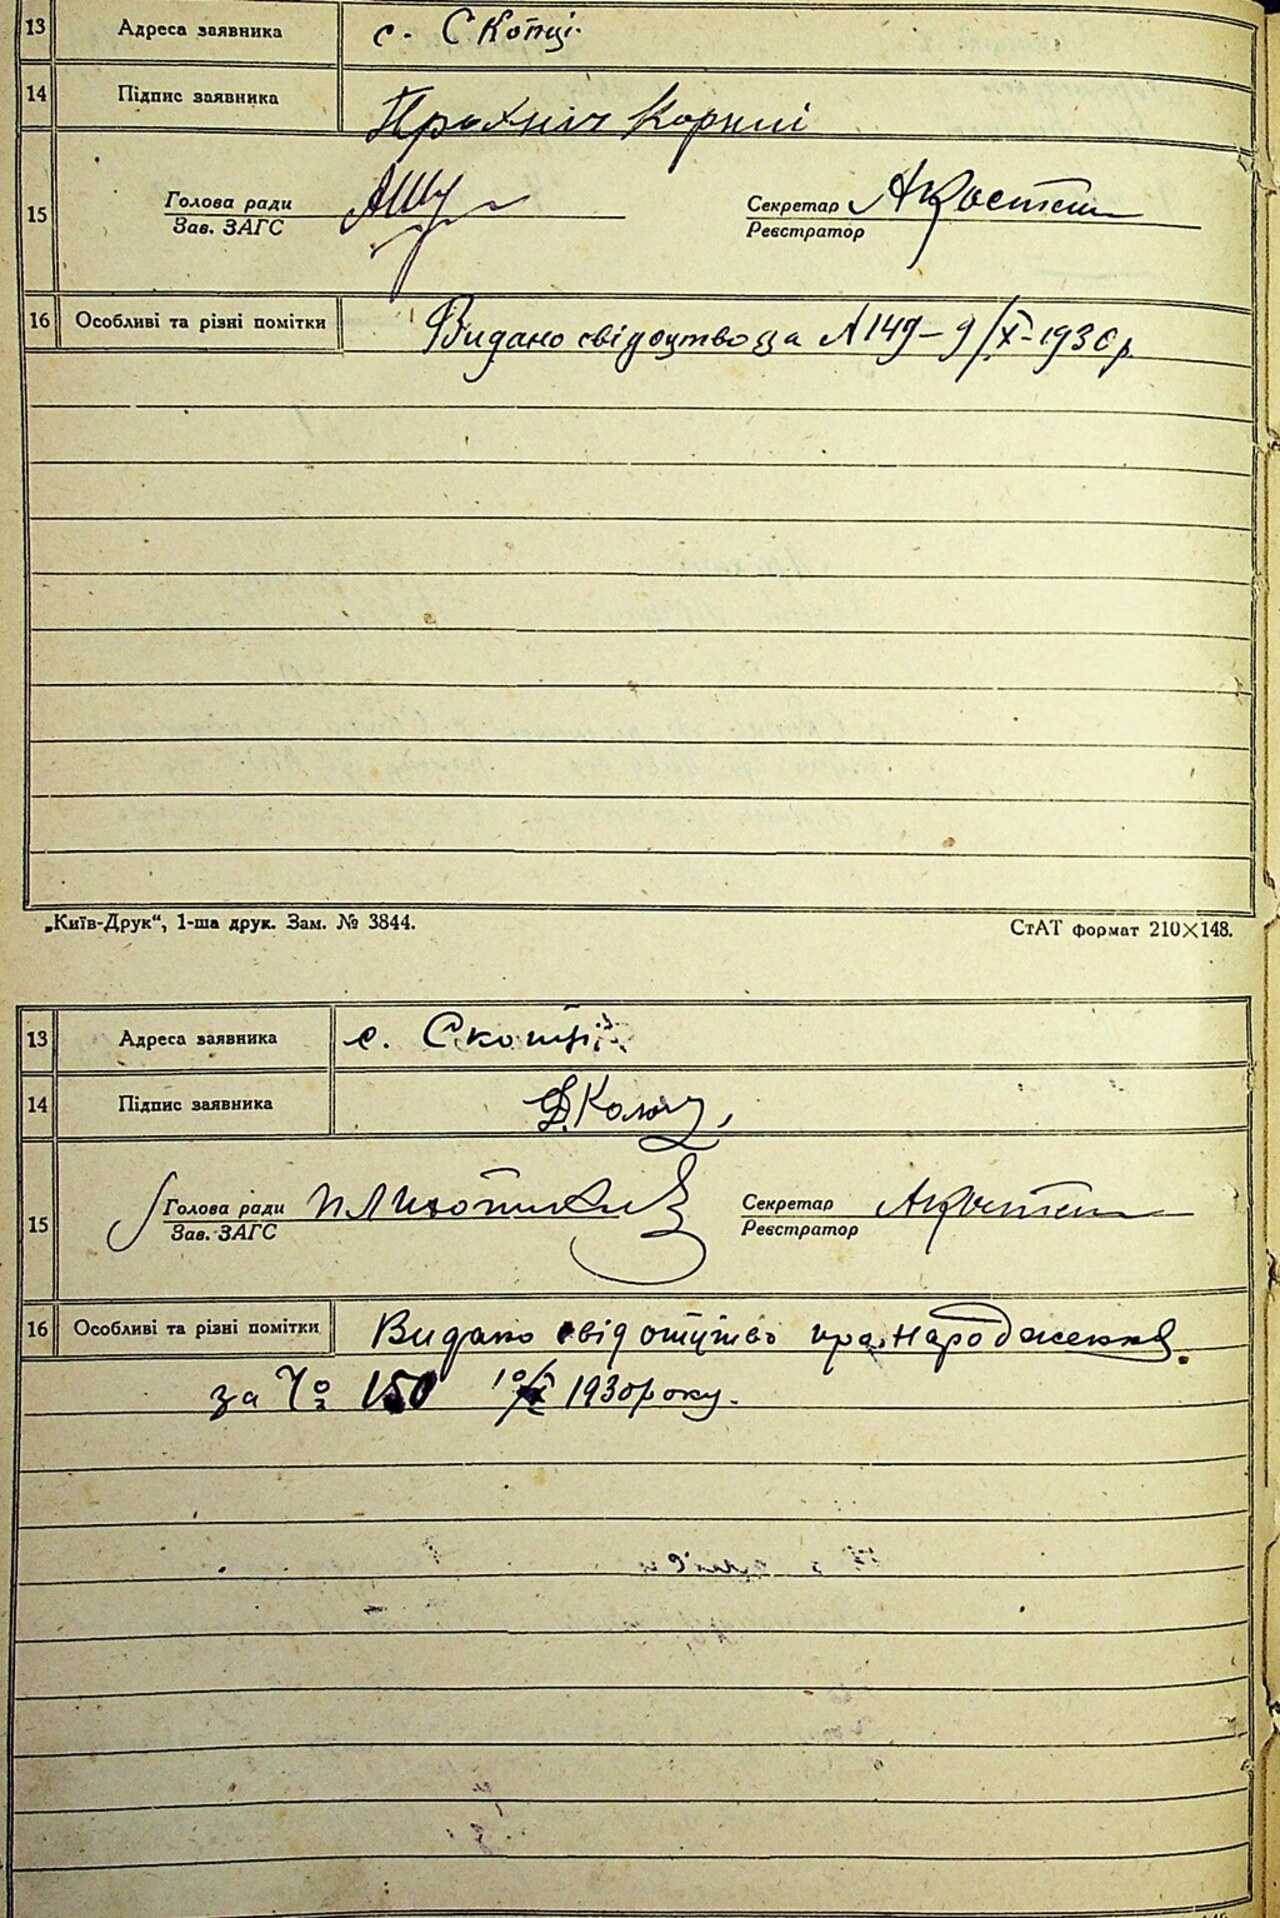 13 Адреса заявника с. Скопці.
14 Підпис заявника Прохнич Корній
15 Голова ради Секретар АКостен
Зав. ЗАГС Реєстратор
16 Особливі та різні помітки Видано свідоцтво за № 149 – 9/X-1930 р
„Київ-Друк“, 1-ша друк. Зам. № 3844. СтАТ формат 210×148.
13 Адреса заявника с. Скопці
14 Підпис заявника
15 Голова ради Секретар АКостен
Зав. ЗАГС Реєстратор
16 Особливі та різні помітки Видано свідотцтво про народження
за № 150 10/X 1930 року.